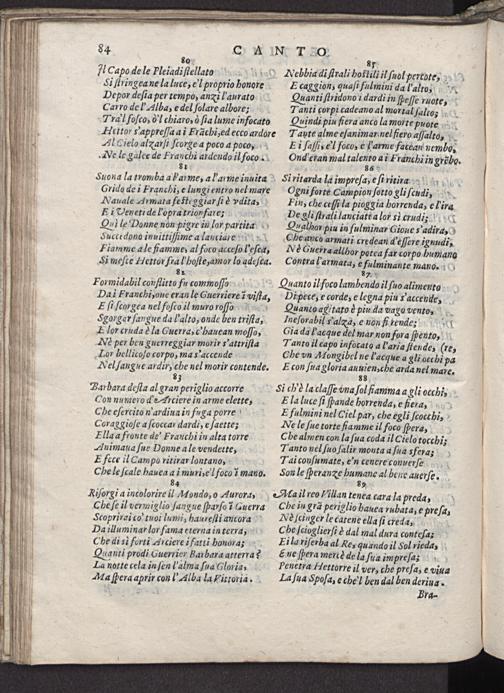 84
CANTO
80
Il Capo de le Pleiadi stellato
Si stringea ne la luce, e'l proprio honore
Depor desia per tempo, anzi l'aurato
Carro de l'Alba, e del solare albore;
Tra'l fosco, ò'l chiaro, ò sia lume infocato
Hettor s'appressa a i Frãchi, ed ecco ardore
Al Cielo alzarsi scorge a poco a poco,
Ne le galee de Franchi ardendo il foco.
81
Suona la tromba a l'arme, a l'arme inuita
Grido de i Franchi, e lungi entro nel mare
Nauale Armata festeggiar si è vdita,
E i Veneti de l'opra trionfare;
Qui le Donne non pigre in lor partita
Succedono inuitissime a lanciare
Fiamme a le fiamme, al foco acceso l'esca,
Si mesce Hettor fra l'hoste, amor lo adesca.
82
Formidabil conflitto fu commosso
Da i Franchi, oue eran le Guerriere ĩ vista,
E si scorgea nel fosco il muro rosso
Sgorger sangue da l'alto, onde ben trista,
E lor cruda è la Guerra, c'hauean mosso,
Nè per ben guerreggiar morir s'attrista
Lor bellicoso corpo, ma s'accende
Nel sangue ardir, che nel morir contende.
83
Barbara desta al gran periglio accorre
Con numero d'Arciere in arme elette,
Che esercito n'ardiua in fuga porre
Coraggiose a scoccar dardi, e saette;
Ella a fronte de' Franchi in alta torre
Animaua sue Donne a le vendette,
E fece il Campo ritirar lontano,
Che le scale hauea a i muri, e'l foco ĩ mano.
84
Risorgi a incolorire il Mondo, o Aurora,
Che se il vermiglio sangue sparso ĩ Guerra
Scoprirai co' tuoi lumi, hauresti ancora
Da illuminar lor fama eterna in terra,
Che di sì forti Arciere i fatti honora;
Quanti prodi Guerrier Barbara atterra?
La notte cela in sen l'alma sua Gloria,
Ma spera aprir con l'Alba la Vittoria.
85
Nebbia di strali hostili il suol percote,
E caggion, quasi fulmini da l'alto,
Quanti stridono i dardi in spesse ruote,
Tanti corpi cadeano al mortal salto;
Quindi piu fiera anco la morte puote
Tante alme esanimar nel fiero assalto,
E i sassi, e'l foco, e l'arme facean nembo,
Ond'eran mal talento a i Franchi in grẽbo.
86
Si ritarda la impresa, e si ritira
Ogni forte Campion sotto gli scudi,
Fin, che cessi la pioggia horrenda, e l'ira
De gli strali lanciati a lor sì crudi;
Qualhor piu in fulminar Gioue s'adira,
Che anco armati credean d'essere ignudi,
Nè Guerra allhor potea far corpo humano
Contra l'armata, e fulminante mano.
87
Quanto il foco lambendo il suo alimento
Di pece, e corde, e legna piu s'accende,
Quanto agitato è piu da vago vento,
Inesorabil s'alza, e non si rende;
Gia da l'acque del mar non fora spento,
Tanto il capo infocato a l'aria stende, (re,
Che vn Mongibel ne l'acque a gli occhi pa
E con sua gloria auuien, che arda nel mare.
88
Si ch'è la classe vna sol fiamma a gli occhi,
E la luce si spande horrenda, e fiera,
E fulmini nel Ciel par, che egli scocchi,
Ne le sue torte fiamme il foco spera,
Che almen con la sua coda il Cielo tocchi;
Tanto nel suo salir monta a sua sfera;
Tai consumate, e'n cenere conuerse
Son le speranze humane al bene auerse.
89
Ma il reo Villan tenea cara la preda,
Che in grã periglio hauea rubata, e presa,
Nè scinger le catene ella si creda,
Che sciogliersi è dal mal dura contesa;
Ei la riserba al Re, quando il Sol rieda,
E ne spera mercè de la sua impresa;
Penetra Hettorre il ver, che presa, e viua
La sua Sposa, e che'l ben dal ben deriua.
Bra-